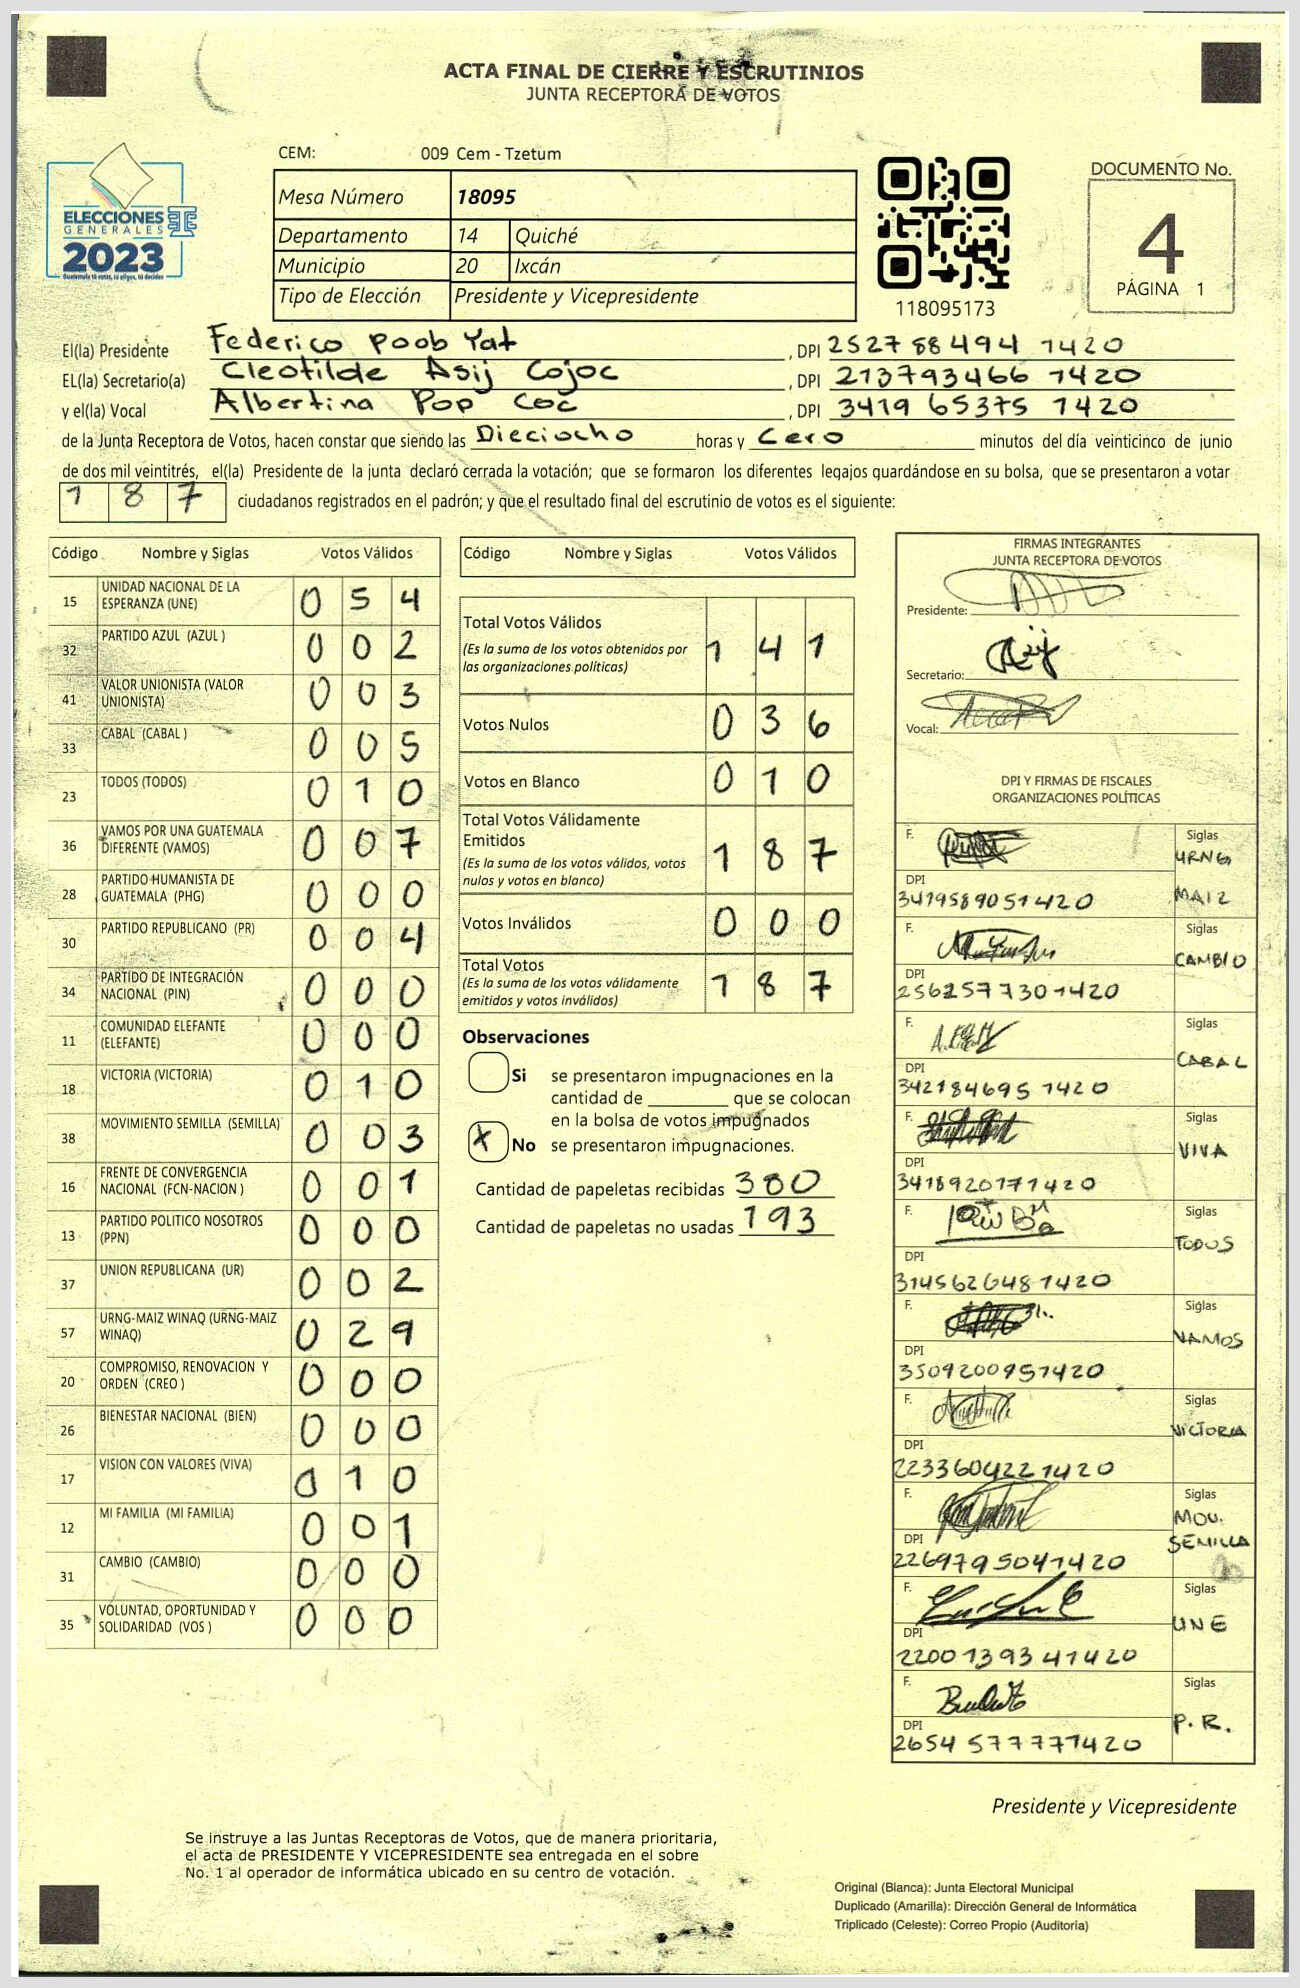 ACTA FINAL DE CIERRE Y ESCRUTINIOS
JUNTA RECEPTORA DE VOTOS
CEM: 009 Cem - Tzetum
Mesa Número 18095
Departamento 14 Quiché
Municipio 20 Ixcán
Tipo de Elección Presidente y Vicepresidente
ELECCIONES
GENERALES
2023
Guatemala tú votas, tú eliges, tú decides
118095173
DOCUMENTO No.
4
PÁGINA 1
El(la) Presidente Federico Poob Yat, DPI 2527 88494 1420
EL(la) Secretario(a) Cleotilde Asij Cojoc, DPI 213793466 1420
y el(la) Vocal Albertina Pop Coc, DPI 3419 65375 1420
de la Junta Receptora de Votos, hacen constar que siendo las Dieciocho horas y Cero minutos del día veinticinco de junio
de dos mil veintitrés, el(la) Presidente de la junta declaró cerrada la votación; que se formaron los diferentes legajos guardándose en su bolsa, que se presentaron a votar
1 8 7 ciudadanos registrados en el padrón; y que el resultado final del escrutinio de votos es el siguiente:
Código Nombre y Siglas Votos Válidos
15 UNIDAD NACIONAL DE LA ESPERANZA (UNE) 0 5 4
32 PARTIDO AZUL (AZUL ) 0 0 2
41 VALOR UNIONISTA (VALOR UNIONISTA) 0 0 3
33 CABAL (CABAL ) 0 0 5
23 TODOS (TODOS) 0 1 0
36 VAMOS POR UNA GUATEMALA DIFERENTE (VAMOS) 0 0 7
28 PARTIDO HUMANISTA DE GUATEMALA (PHG) 0 0 0
30 PARTIDO REPUBLICANO (PR) 0 0 4
34 PARTIDO DE INTEGRACIÓN NACIONAL (PIN) 0 0 0
11 COMUNIDAD ELEFANTE (ELEFANTE) 0 0 0
18 VICTORIA (VICTORIA) 0 1 0
38 MOVIMIENTO SEMILLA (SEMILLA) 0 0 3
16 FRENTE DE CONVERGENCIA NACIONAL (FCN-NACION ) 0 0 1
13 PARTIDO POLITICO NOSOTROS (PPN) 0 0 0
37 UNION REPUBLICANA (UR) 0 0 2
57 URNG-MAIZ WINAQ (URNG-MAIZ WINAQ) 0 2 9
20 COMPROMISO, RENOVACION Y ORDEN (CREO ) 0 0 0
26 BIENESTAR NACIONAL (BIEN) 0 0 0
17 VISION CON VALORES (VIVA) 0 1 0
12 MI FAMILIA (MI FAMILIA) 0 0 1
31 CAMBIO (CAMBIO) 0 0 0
35 VOLUNTAD, OPORTUNIDAD Y SOLIDARIDAD (VOS ) 0 0 0
Código Nombre y Siglas Votos Válidos
Total Votos Válidos 1 4 1
(Es la suma de los votos obtenidos por
las organizaciones políticas)
Votos Nulos 0 3 6
Votos en Blanco 0 1 0
Total Votos Válidamente
Emitidos 1 8 7
(Es la suma de los votos válidos, votos
nulos y votos en blanco)
Votos Inválidos 0 0 0
Total Votos 1 8 7
(Es la suma de los votos válidamente
emitidos y votos inválidos)
Observaciones
Si se presentaron impugnaciones en la
cantidad de ________ que se colocan
en la bolsa de votos impugnados
X No se presentaron impugnaciones.
Cantidad de papeletas recibidas 380
Cantidad de papeletas no usadas 193
FIRMAS INTEGRANTES
JUNTA RECEPTORA DE VOTOS
Presidente:
Secretario:
Vocal:
DPI Y FIRMAS DE FISCALES
ORGANIZACIONES POLÍTICAS
F. Siglas URNG MAIZ
DPI 3419589051420
F. Siglas CAMBIO
DPI 2562577301420
F. Siglas CABAL
DPI 342184695 1420
F. Siglas VIVA
DPI 3418920171420
F. Siglas TODOS
DPI 3145626481420
F. Siglas VAMOS
DPI 3509200951420
F. Siglas VICTORIA
DPI 2233604221420
F. Siglas MOV. SEMILLA
DPI 2269795041420
F. Siglas UNE
DPI 2200139341420
F. Siglas P.R.
DPI 2654 577771420
Presidente y Vicepresidente
Se instruye a las Juntas Receptoras de Votos, que de manera prioritaria,
el acta de PRESIDENTE Y VICEPRESIDENTE sea entregada en el sobre
No. 1 al operador de informática ubicado en su centro de votación.
Original (Blanca): Junta Electoral Municipal
Duplicado (Amarilla): Dirección General de Informática
Triplicado (Celeste): Correo Propio (Auditoría)